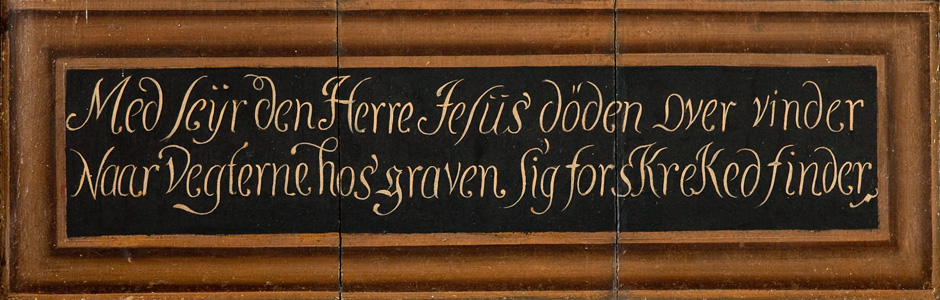 Med seÿr den Herre Jesüs döden over vinder
Naar Vegterne hos graven sig forskreked finder.